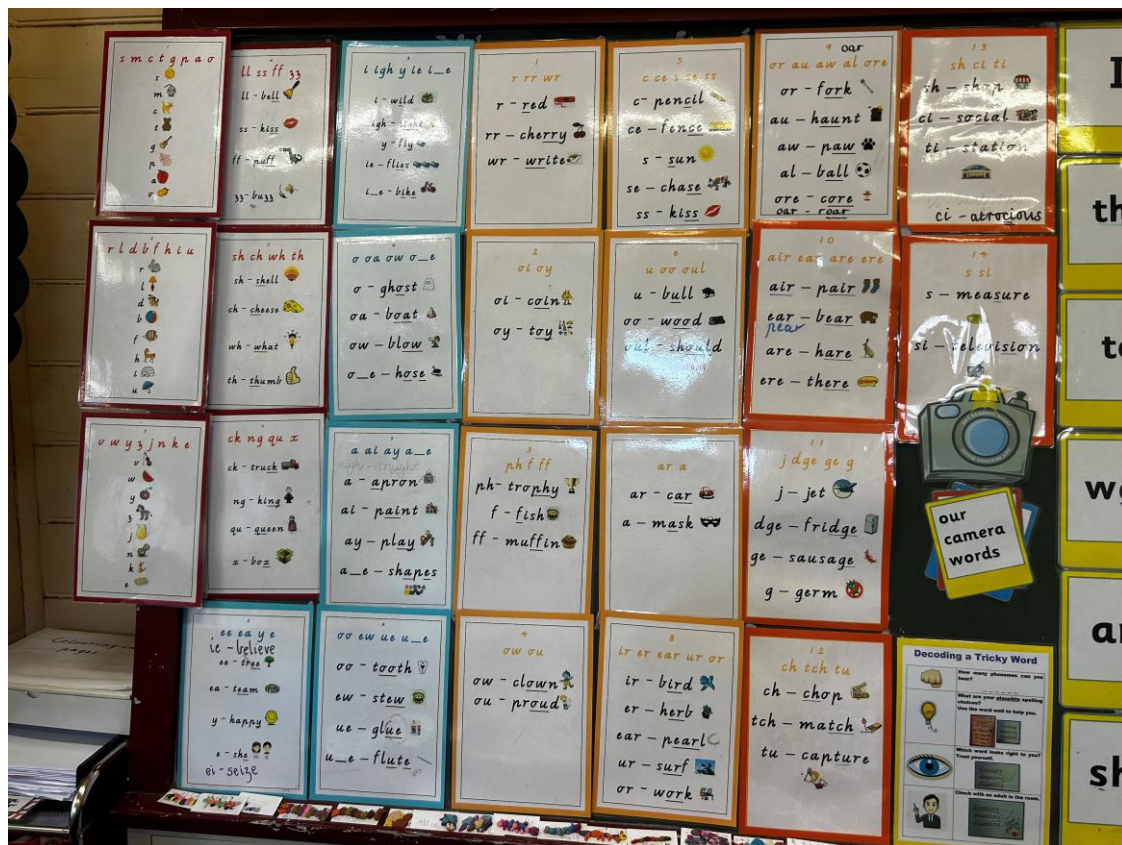 s m c t g p a o
s
m
c
t
g
p
a
o
r l d b f h i u
r
l
d
b
f
h
i
u
v w y z j n k e
v
w
y
z
j
n
k
e
ll ss ff zz
ll - bell
ss - kiss
ff - puff
zz - buzz
sh ch wh th
sh - shell
ch - cheese
wh - what
th - thumb
ck ng qu x
ck - truck
ng - king
qu - queen
x - box
ee ea y e
ie - believe
ee - tree
ea - team
y - happy
e - she
ei - seize
i igh y ie i_e
i - wild
igh - light
y - fly
ie - flies
i_e - bike
o oa ow o_e
o - ghost
oa - boat
ow - blow
o_e - hose
a ai ay a_e
a - apron
ai - paint
ay - play
a_e - shapes
oo ew ue u_e
oo - tooth
ew - stew
ue - glue
u_e - flute
1
r rr wr
r - red
rr - cherry
wr - write
2
oi oy
oi - coin
oy - toy
3
ph f ff
ph - trophy
f - fish
ff - muffin
4
ow ou
ow - clown
ou - proud
5
c ce s se ss
c - pencil
ce - fence
s - sun
se - chase
ss - kiss
6
u oo oul
u - bull
oo - wood
oul - should
ar a
ar - car
a - mask
8
ir er ear ur or
ir - bird
er - herb
ear - pearl
ur - surf
or - work
9 oar
or au aw al ore
or - fork
au - haunt
aw - paw
al - ball
ore - core
oar - roar
10
air ear are ere
air - pair
ear - bear
pear
are - hare
ere - there
11
j dge ge g
j - jet
dge - fridge
ge - sausage
g - germ
12
ch tch tu
ch - chop
tch - match
tu - capture
13
sh ci ti
sh - shop
ci - social
ti - station
ci - atrocious
14
s si
s - measure
si - television
our
camera
words
Decoding a Tricky Word
How many phonemes can you
hear?
What are your plausible spelling
choices?
Use the word wall to help you.
Which word looks right to you?
Trust yourself.
Check with an adult in the room.
Colouring in
pages